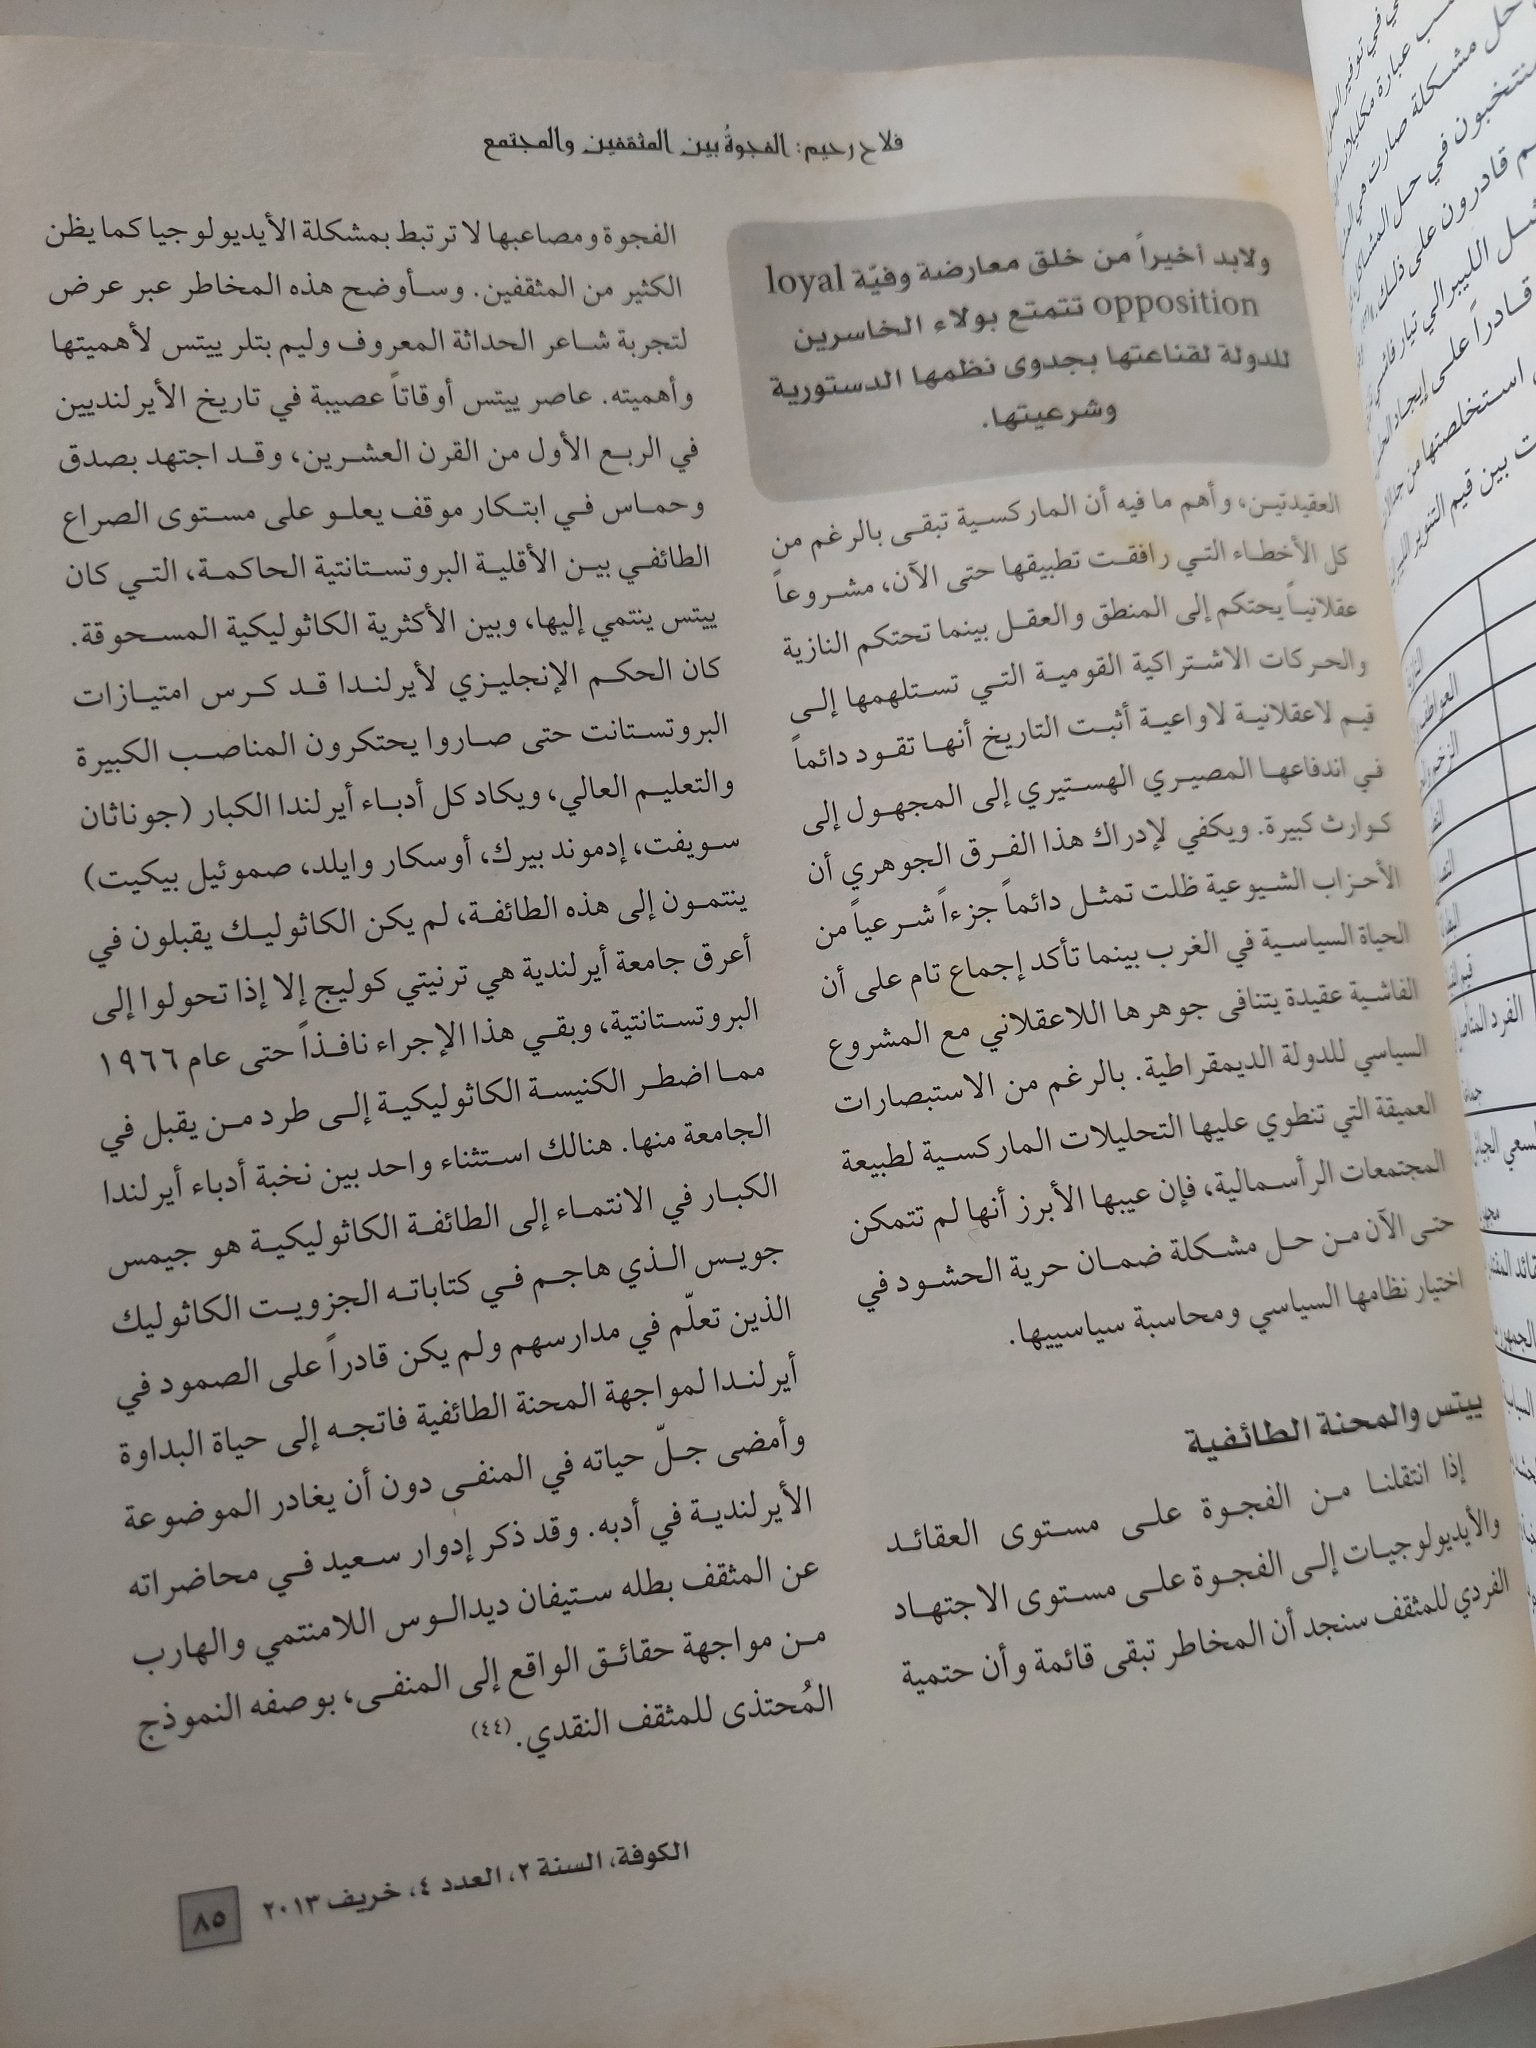 فلاح رحيم: الفجوةُ بين المثقفين والمجتمع
ولابد أخيراً من خلق معارضة وفيّة loyal
opposition تتمتع بولاء الخاسرين
للدولة لقناعتها بجدوى نظمها الدستورية
وشرعيتها.
العقيدتين، وأهم ما فيه أن الماركسية تبقى بالرغم من
كل الأخطاء التي رافقت تطبيقها حتى الآن، مشروعاً
عقلانياً يحتكم إلى المنطق والعقل بينما تحتكم النازية
والحركات الاشتراكية القومية التي تستلهمها إلى
قيم لاعقلانية لاواعية أثبت التاريخ أنها تقود دائماً
في اندفاعها المصيري الهستيري إلى المجهول إلى
كوارث كبيرة. ويكفي لإدراك هذا الفرق الجوهري أن
الأحزاب الشيوعية ظلت تمثل دائماً جزءاً شرعياً من
الحياة السياسية في الغرب بينما تأكد إجماع تام على أن
الفاشية عقيدة يتنافى جوهرها اللاعقلاني مع المشروع
السياسي للدولة الديمقراطية. بالرغم من الاستبصارات
العميقة التي تنطوي عليها التحليلات الماركسية لطبيعة
المجتمعات الرأسمالية، فإن عيبها الأبرز أنها لم تتمكن
حتى الآن من حل مشكلة ضمان حرية الحشود في
اختيار نظامها السياسي ومحاسبة سياسييها.
ييتس والمحنة الطائفية
إذا انتقلنا من الفجوة على مستوى العقائد
والأيديولوجيات إلى الفجوة على مستوى الاجتهاد
الفردي للمثقف سنجد أن المخاطر تبقى قائمة وأن حتمية
الفجوة ومصاعبها لا ترتبط بمشكلة الأيديولوجيا كما يظن
الكثير من المثقفين. وسأوضح هذه المخاطر عبر عرض
لتجربة شاعر الحداثة المعروف وليم بتلر ييتس لأهميتها
وأهميته. عاصر ييتس أوقاتاً عصيبة في تاريخ الأيرلنديين
في الربع الأول من القرن العشرين، وقد اجتهد بصدق
وحماس في ابتكار موقف يعلو على مستوى الصراع
الطائفي بين الأقلية البروتستانتية الحاكمة، التي كان
ييتس ينتمي إليها، وبين الأكثرية الكاثوليكية المسحوقة.
كان الحكم الإنجليزي لأيرلندا قد كرس امتيازات
البروتستانت حتى صاروا يحتكرون المناصب الكبيرة
والتعليم العالي، ويكاد كل أدباء أيرلندا الكبار (جوناثان
سويفت، إدموند بيرك، أوسكار وايلد، صموئيل بيكيت)
ينتمون إلى هذه الطائفة، لم يكن الكاثوليك يقبلون في
أعرق جامعة أيرلندية هي ترنيتي كوليج إلا إذا تحولوا إلى
البروتستانتية، وبقي هذا الإجراء نافذاً حتى عام ١٩٦٦
مما اضطر الكنيسة الكاثوليكية إلى طرد من يقبل في
الجامعة منها. هنالك استثناء واحد بين نخبة أدباء أيرلندا
الكبار في الانتماء إلى الطائفة الكاثوليكية هو جيمس
جويس الذي هاجم في كتاباته الجزويت الكاثوليك
الذين تعلّم في مدارسهم ولم يكن قادراً على الصمود في
أيرلندا لمواجهة المحنة الطائفية فاتجه إلى حياة البداوة
وأمضى جلّ حياته في المنفى دون أن يغادر الموضوعة
الأيرلندية في أدبه. وقد ذكر إدوار سعيد في محاضراته
عن المثقف بطله ستيفان ديدالوس اللامنتمي والهارب
من مواجهة حقائق الواقع إلى المنفى، بوصفه النموذج
المُحتذى للمثقف النقدي.(٤٤)
الكوفة، السنة ٢، العدد ٤، خريف ٢٠١٣
٨٥